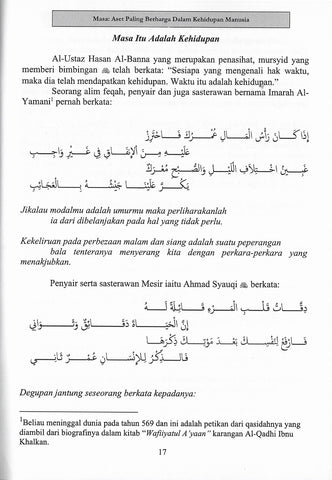 Masa: Aset Paling Berharga Dalam Kehidupan Manusia
Masa Itu Adalah Kehidupan
Al-Ustaz Hasan Al-Banna yang merupakan penasihat, mursyid yang
memberi bimbingan telah berkata: "Sesiapa yang mengenali hak waktu,
maka dia telah mendapatkan kehidupan. Waktu itu adalah kehidupan."
Seorang alim feqah, penyair dan juga sasterawan bernama Imarah Al-
Yamani¹ pernah berkata:
إِذَا كَـــانَ رَأْسُ الْمَـــالِ عُمْـــرُكَ فَـــاحْتَرِزْ
عَلَيْـــهِ مِـــنَ الْإِنْفَـــاقِ فِي غَـــيْرِ وَاجِـــبِ
اخْـــتِلَافِ اللَّيْـــلِ وَالصُّـــبْحِ مَعْـــرَكٌ
يَكُـــرُّ عَلَيْنَـــا جَيْشُـــهُ بِـــالْعَجَائِبِ
Jikalau modalmu adalah umurmu maka perliharakanlah
ia dari dibelanjakan pada hal yang tidak perlu.
Kekeliruan pada perbezaan malam dan siang adalah suatu peperangan
bala tenteranya menyerang kita dengan perkara-perkara yang
menakjubkan.
Penyair serta sasterawan Mesir iaitu Ahmad Syauqi berkata:
دَقَّـــاتُ قَلْـــبِ الْمَـــرْءِ قَائِلَـــةٌ لَـــهُ
إِنَّ الْحَيَـــاةَ دَقَـــائِقٌ وَثَـــوَانِي
فَـــارْفَعْ لِنَفْسِـــكَ بَعْـــدَ مَوْتِـــكَ ذِكْرَهَـــا
فَالـــذِّكْرُ لِلْإِنْسَـــانِ عُمْـــرٌ ثَـــانِي
Degupan jantung seseorang berkata kepadanya:
¹Beliau meninggal dunia pada tahun 569 dan ini adalah petikan dari qasidahnya yang
diambil dari biografinya dalam kitab "Wafiyatul A'yaan" karangan Al-Qadhi Ibnu
Khalkan.
17